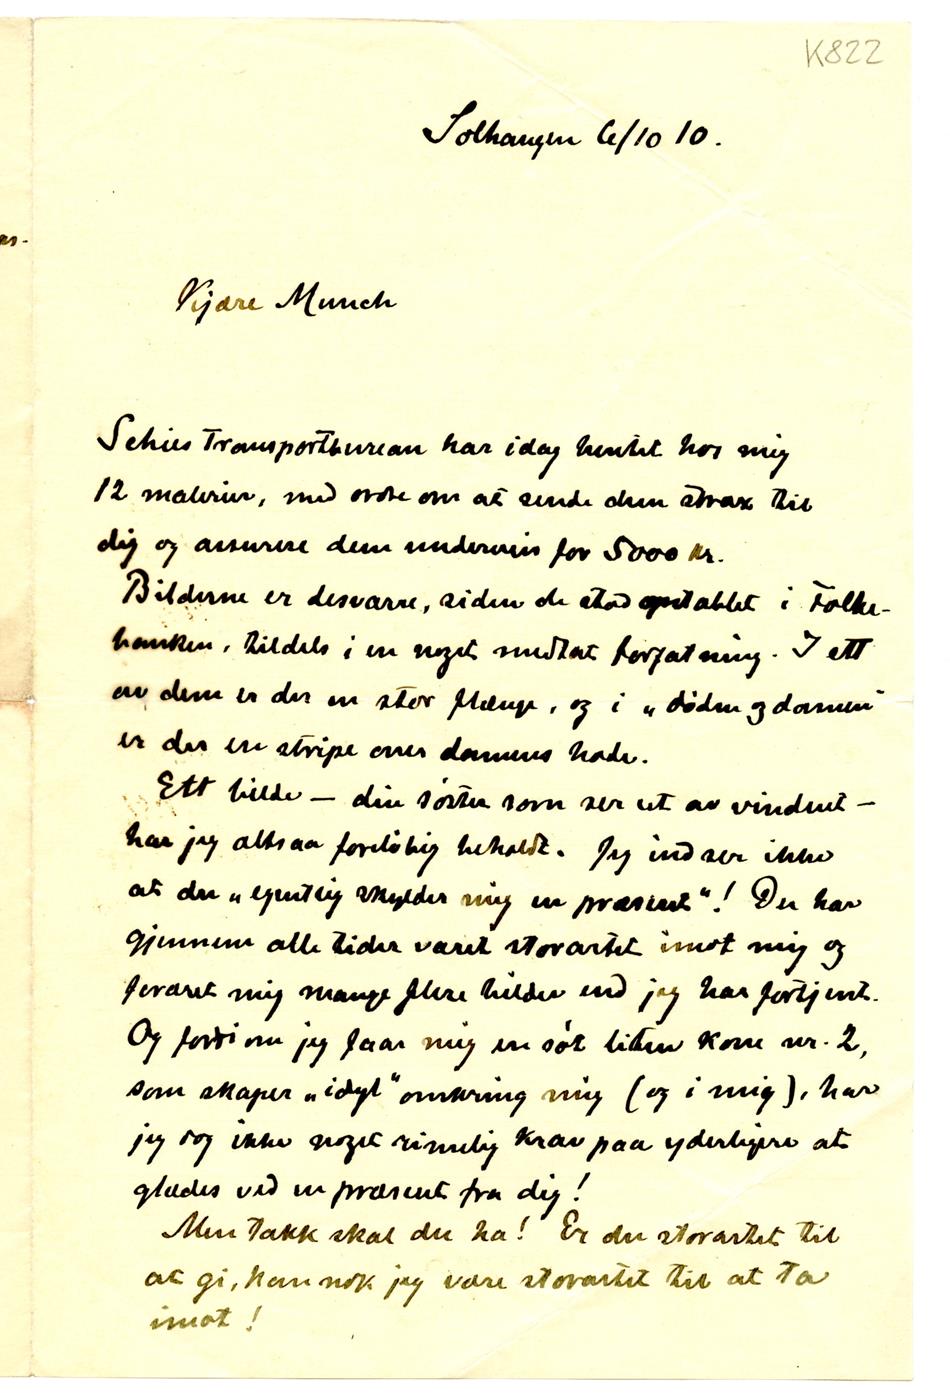 K822
Solhaugen 6/10 10.
Kjære Munch
Schies Transportbureau har idag hentet hos mig
12 malerier, med ordre om at sende dem strax til
dig og assurere dem underveis for 5000 kr.
Bilderne er desværre, siden de stod opstablet i Folke-
banken, tildels i en noget medtat forfatning. I ett
av dem er der en stor flænge, og i „Døden og damen"
er der en stripe over damens hode.
Ett bilde — din søster som ser ut av vinduet —
har jeg altsaa foreløbig beholdt. Jeg indser ikke
at du „egentlig skylder mig en præsent"! Du har
gjennem alle tider været storartet imot mig og
foræret mig mange flere bilder end jeg har fortjent.
Og fordi om jeg faar mig en søt liten kone nr. 2,
som skaper „idyl" omkring mig (og i mig), har
jeg dog ikke noget rimelig krav paa yderligere at
glædes ved en præsent fra dig!
Men takk skal du ha! Er du storartet til
at gi, kan nok jeg være storartet til at ta
imot!